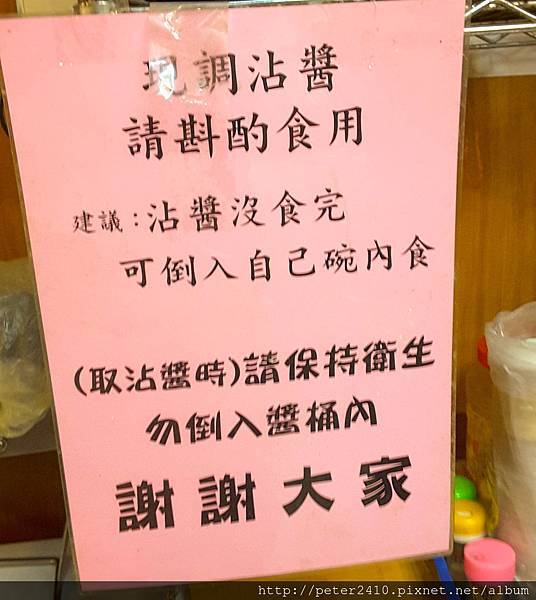 現調沾醬
請斟酌食用
建議：沾醬沒食完
可倒入自己碗內食
(取沾醬時)請保持衛生
勿倒入醬桶內
謝謝大家
http://peter2410.pixnet.net/album